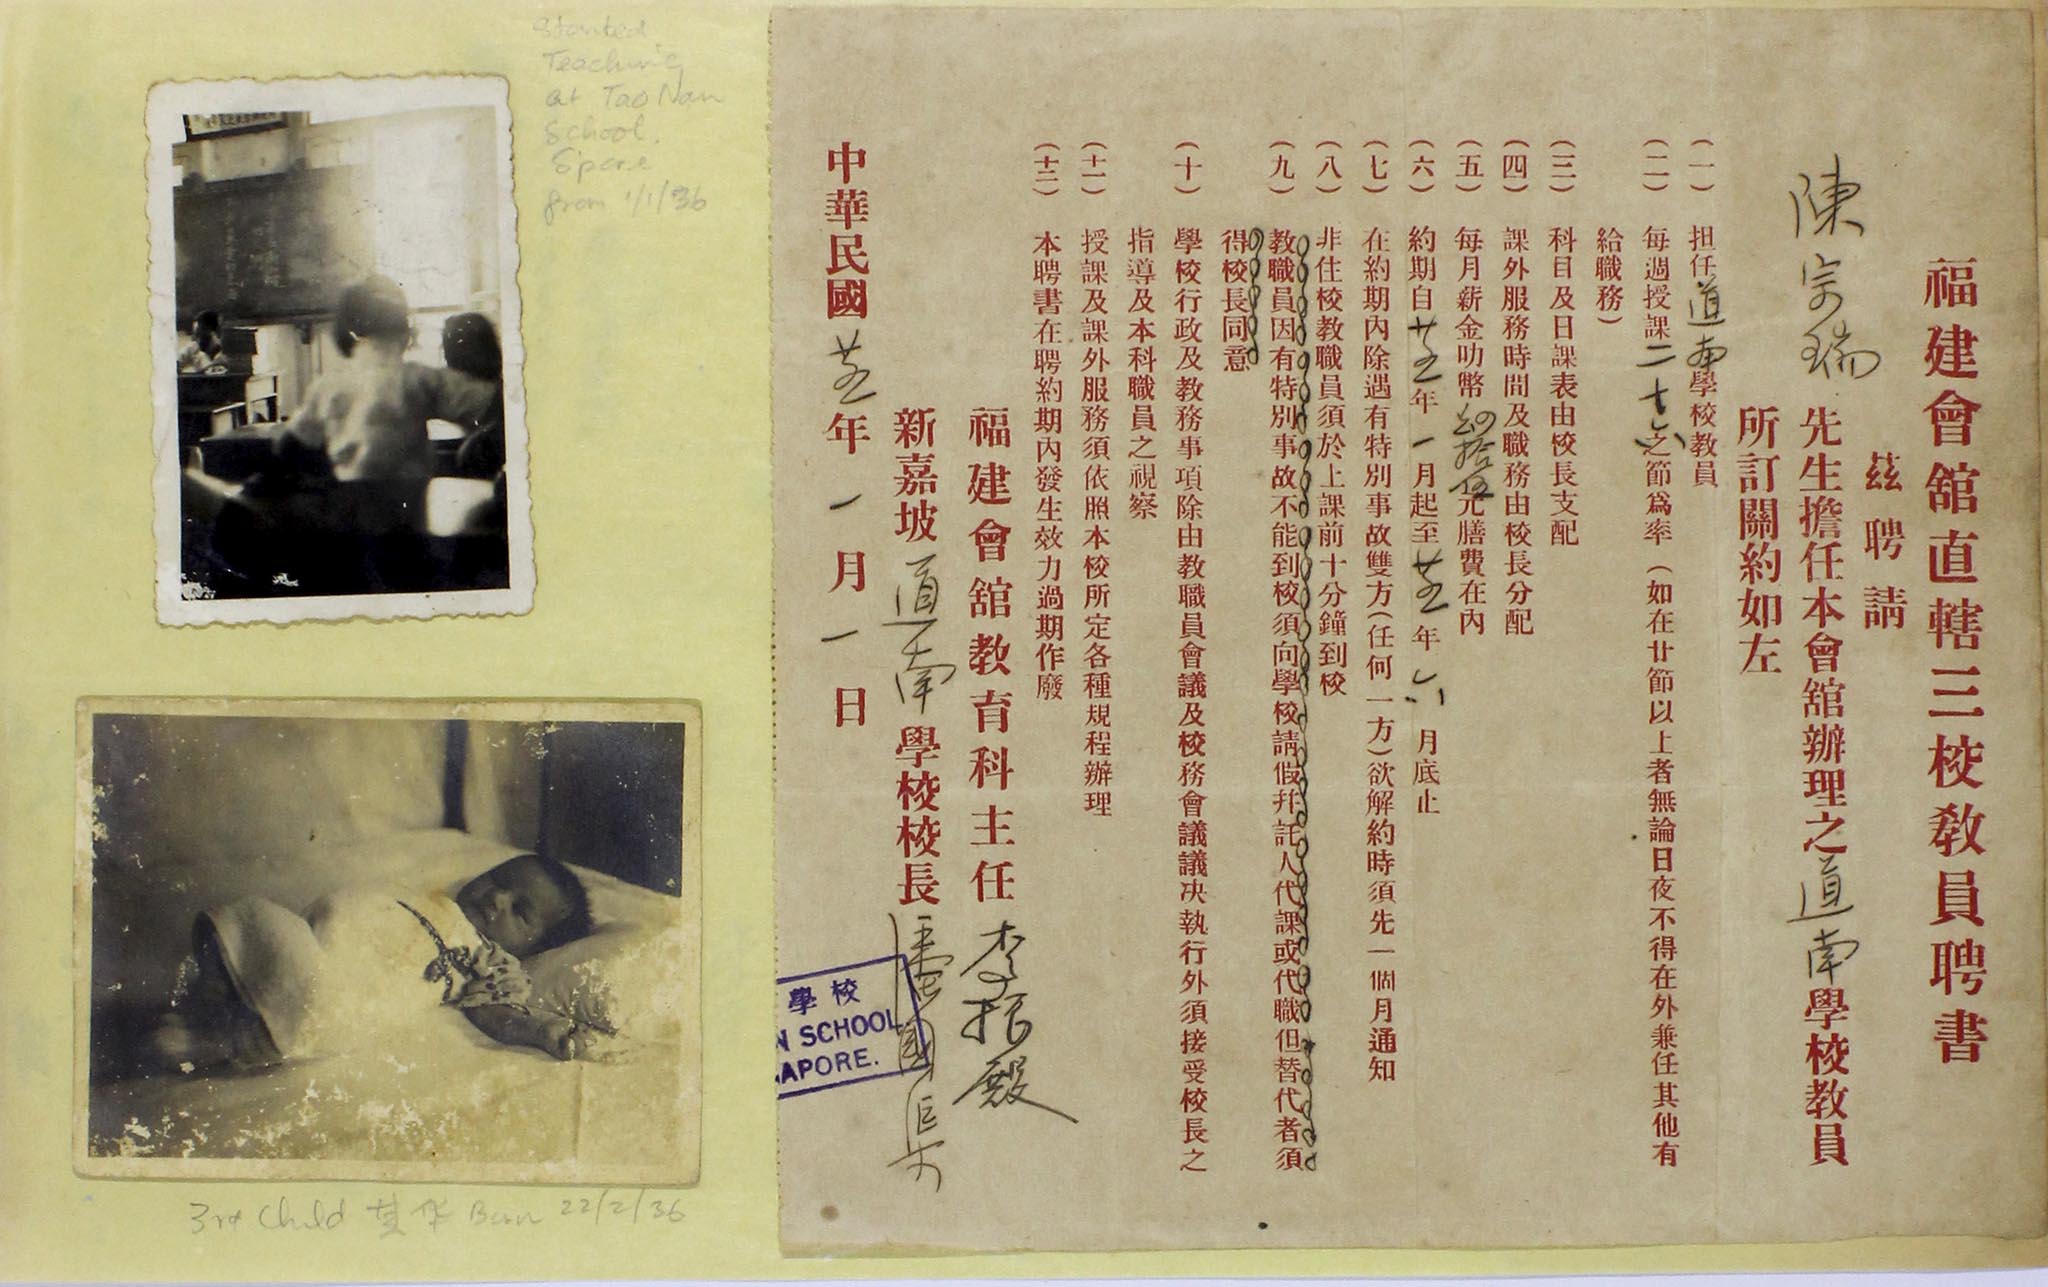 Started
Teaching
at Tao Nan
School.
S'pore
from 1/1/36
3rd Child
Born 22/2/36
福建會舘直轄三校教員聘書
茲聘請
陳宗瑞先生擔任本會舘辦理之道南學校教員
所訂關約如左
(一)担任道南學校教員
(二)每週授課二十六之節爲率(如在廿節以上者無論日夜不得在外兼任其他有
給職務)
(三)科目及日課表由校長支配
(四)課外服務時間及職務由校長分配
(五)每月薪金叻幣拾伍元膳費在內
(六)約期自廿五年一月起至廿五年六月底止
(七)在約期內除遇有特別事故雙方(任何一方)欲解約時須先一個月通知
(八)非住校教職員須於上課前十分鐘到校
(九)教職員因有特別事故不能到校須向學校請假幷託人代課或代職但替代者須
得校長同意
(十)學校行政及教務事項除由教職員會議及校務會議議决執行外須接受校長之
指導及本科職員之視察
(十一)授課及課外服務須依照本校所定各種規程辦理
(十二)本聘書在聘約期內發生效力過期作廢
福建會舘教育科主任李振殿
新嘉坡道南學校校長潘國渠
中華民國廿五年一月一日
學校
N SCHOOL
APORE.